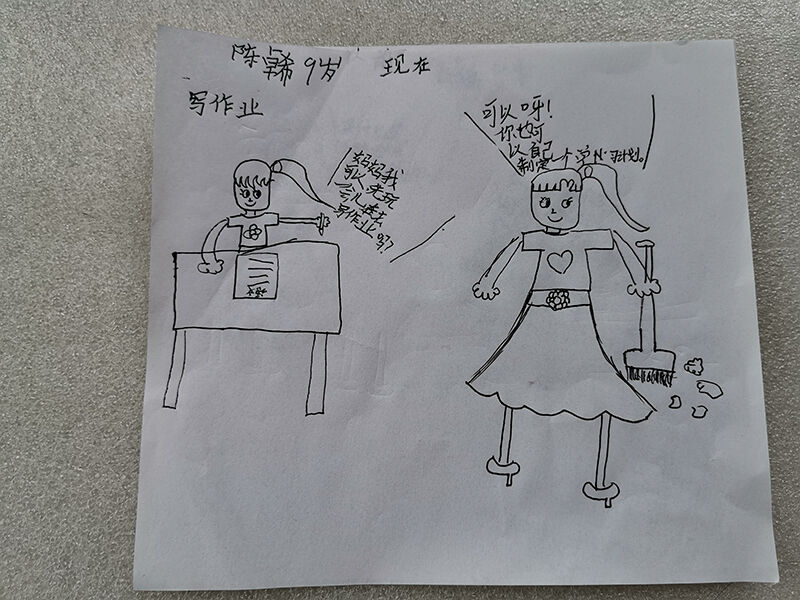 陈羿希 9岁 现在
写作业
妈妈我
可以先玩
会儿在去
写作业吗?
可以呀!
你也可
以自己
制定一个学计划。